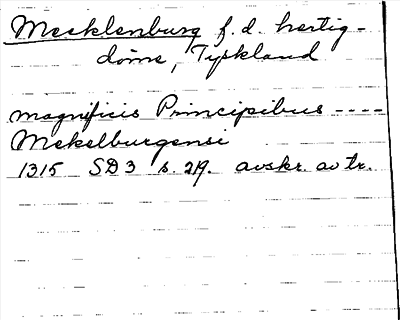 Mecklenburg f.d. hertig-
döme, Tyskland
magnificis Principibus ----
Mekelburgensi
1315 SD3 s. 219. avskr. av tr.